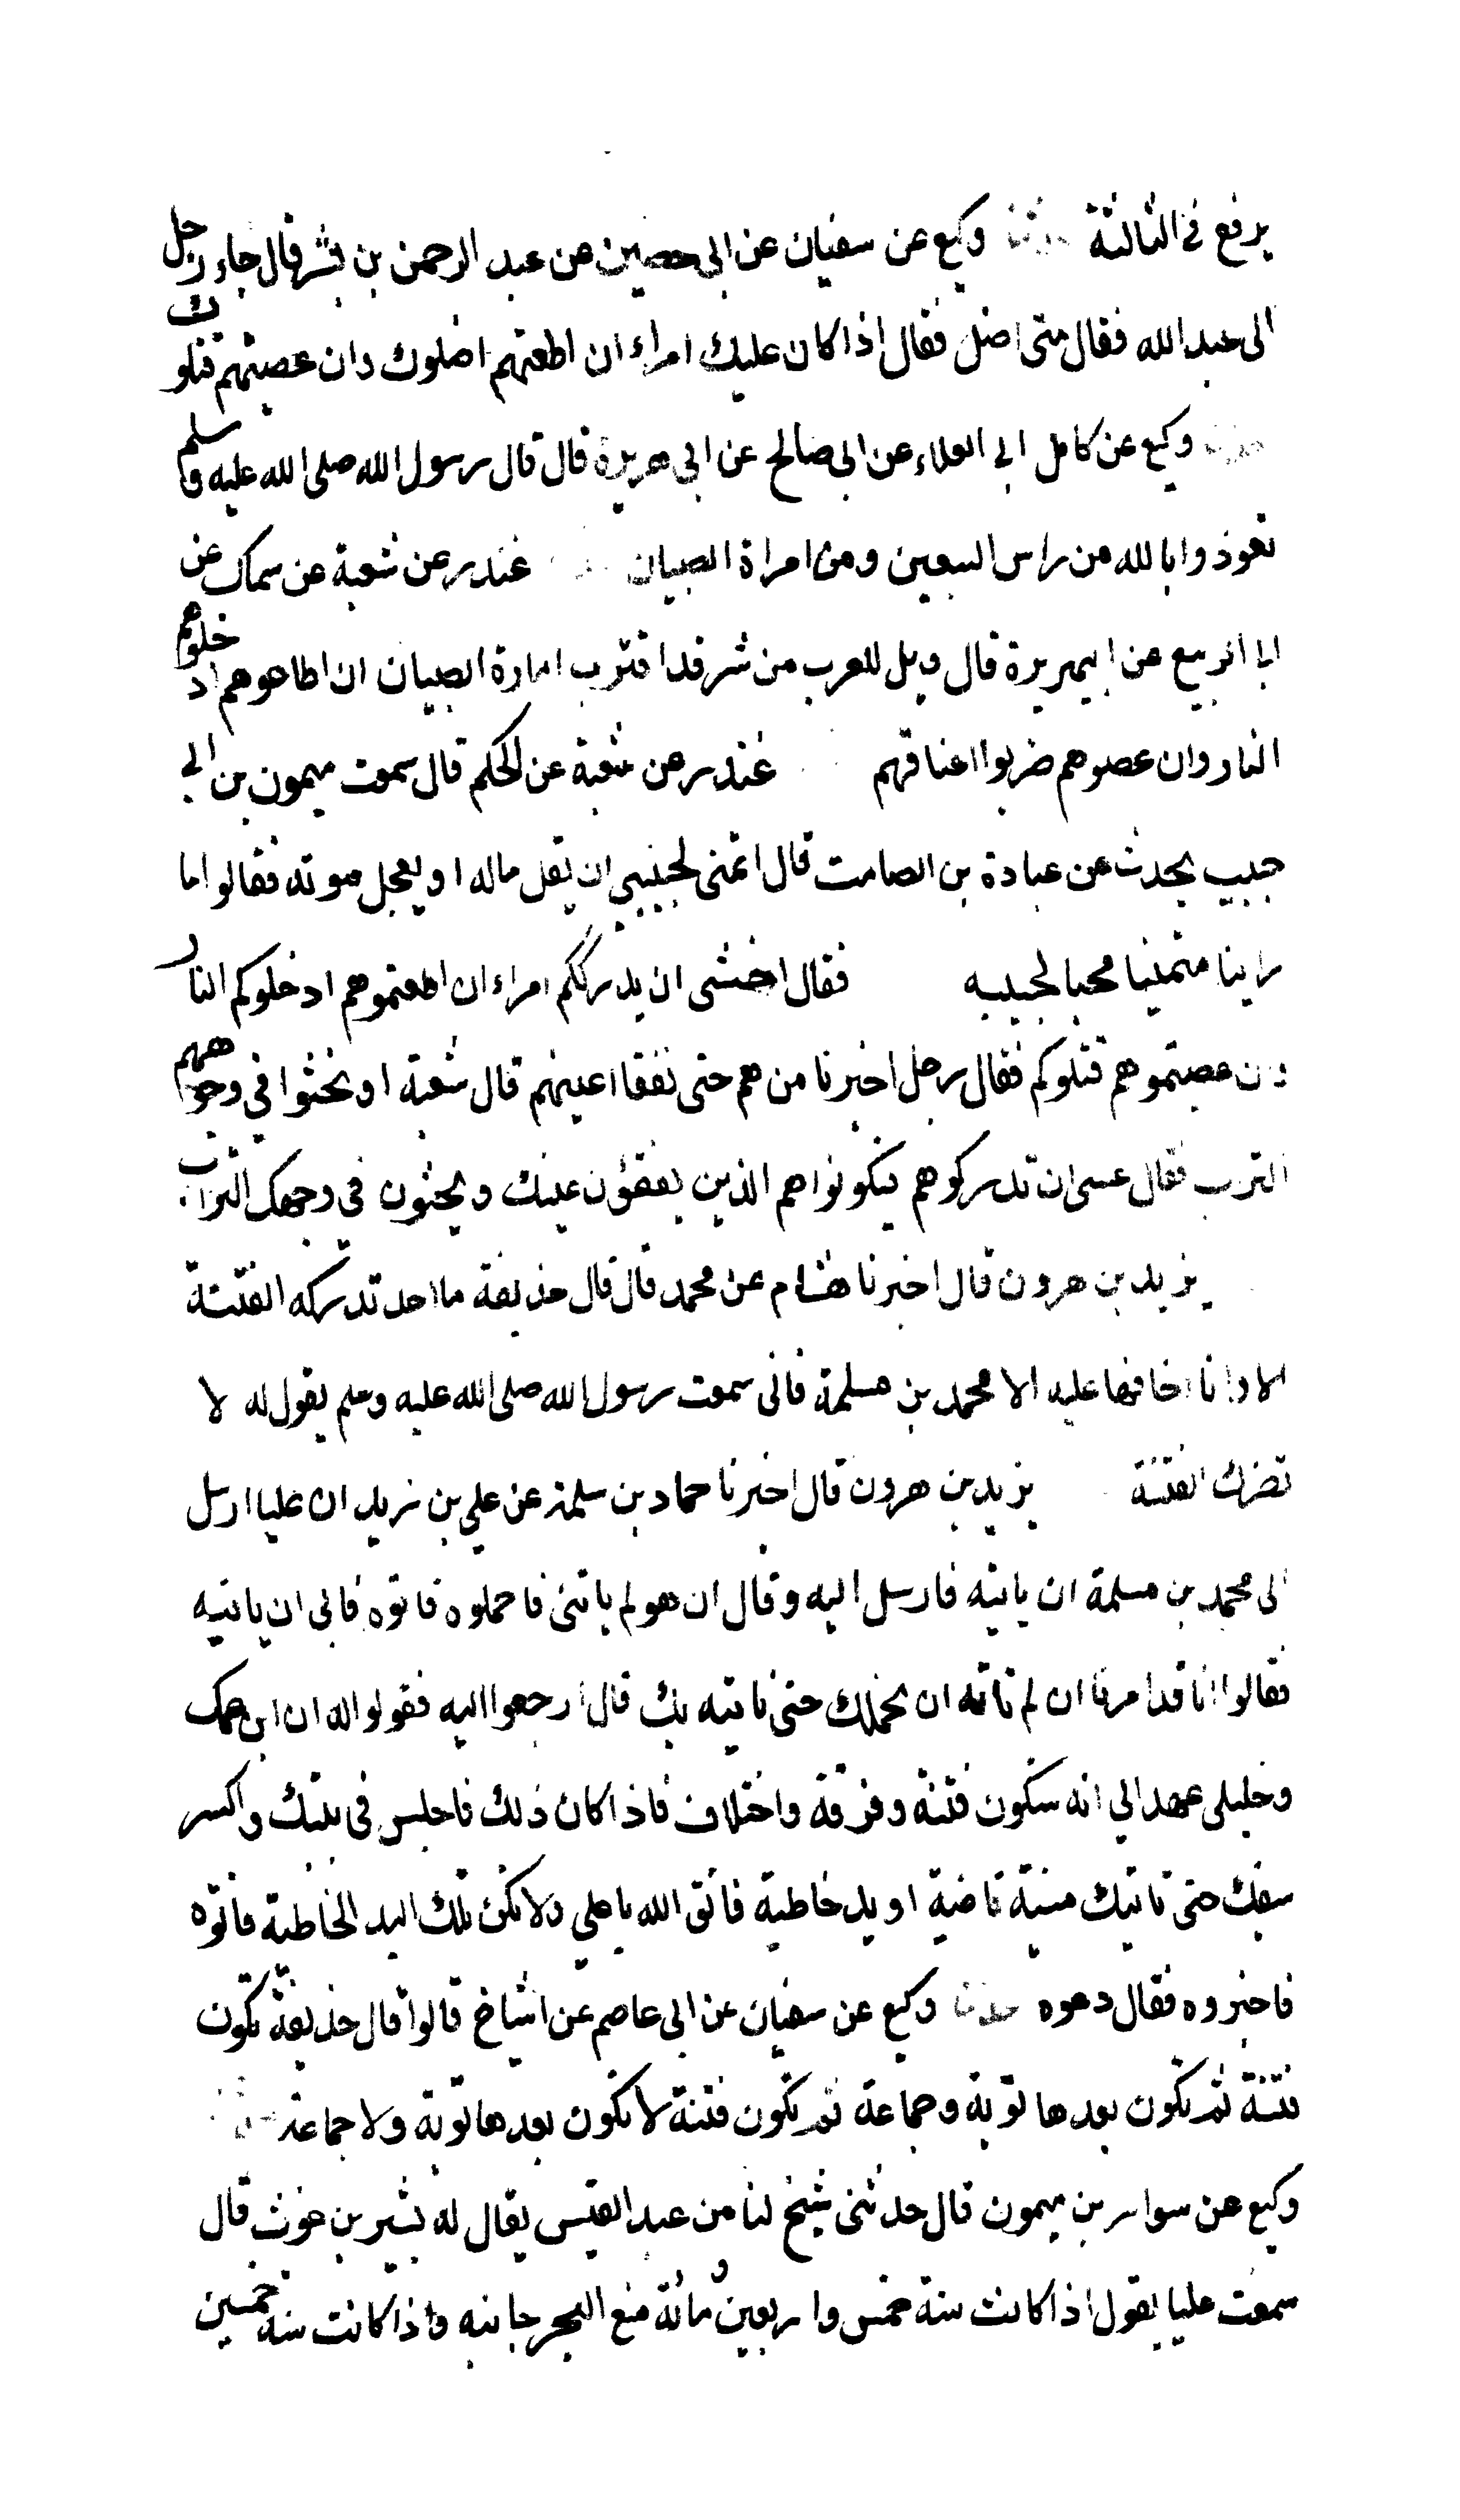 يرفع في الثالثة حدثنا وكيع عن سفيان عن ابي حصين عن عبد الرحمن بن بشر قال جاء رجل
الى عبد الله فقال متى اضل فقال اذا كان عليك امراء ان اطعتهم اضلوك وان عصيتهم قتلوك
حدثنا وكيع عن كامل ابي العلاء عن ابي صالح عن ابي هريرة قال قال رسول الله صلى الله عليه وسلم
تعوذوا بالله من راس السبعين ومن امراة الصبيان غندر عن شعبة عن سماك عن
ابا الربيع عن ابيهريرة قال ويل للعرب من شر قد اقترب امارة الصبيان ان اطاعوهم ادخلوهم
النار وان عصوهم ضربوا اعناقهم غندر عن شعبة عن الحكم قال سمعت ميمون بن ابي
حبيب يحدث عن عبادة بن الصامت قال اتمنى لحبيبي ان يقل ماله او يعجل موته فقالوا ما
راينا متمنيا محبا لحبيبه فقال اخشى ان يدرككم امراء ان اطعتموهم ادخلوكم النار
وان عصيتموهم قتلوكم فقال رجل اخبرنا من هم حتى نفقا اعينهم قال شعبة او نحثوا في وجوههم
التراب فقال عسى ان تدركوهم فيكونوا هم الذين يفقؤن عينك ويحثون في وجهك التراب
يزيد بن هرون قال اخبرنا هشام عن محمد قال قال حذيفة ما احد تدركه الفتنة
الا وانا اخافها عليه الا محمد بن مسلمة فانى سمعت رسول الله صلى الله عليه وسلم يقول له لا
تضرك الفتنة يزيد بن هرون قال اخبرنا حماد بن سلمة عن علي بن زيد ان عليا ارسل
الى محمد بن مسلمة ان ياتيه فارسل اليه وقال ان هو لم ياتنى فاحملوه فاتوه فابى ان ياتيه
فقالوا انا قد امرنا ان لم تاته ان نحملك حتى ناتيه بك قال ارجعوا اليه فقولوا له ان ابن عمك
وخليلى عهد الي انه ستكون فتنة وفرقة واختلاف فاذا كان ذلك فاجلس فى بيتك واكسر
سيفك حتى تاتيك منية قاضية او يد خاطية فاتق الله يا علي ولا تكن تلك اليد الخاطية فاتوه
فاخبروه فقال دعوه حدثنا وكيع عن سفيان عن ابي عاصم عن اشياخ قالوا قال حذيفة تكون
فتنة ثم تكون بعدها توبة وجماعة ثم تكون فتنة لا تكون بعدها توبة ولا جماعة حدثنا
وكيع عن سوار بن ميمون قال حدثنى شيخ لنا من عبد القيس يقال له بشير بن غوث قال
سمعت عليا يقول اذا كانت سنة خمس واربعين ومائة منع البحر جانبه واذا كانت سنة خمسين